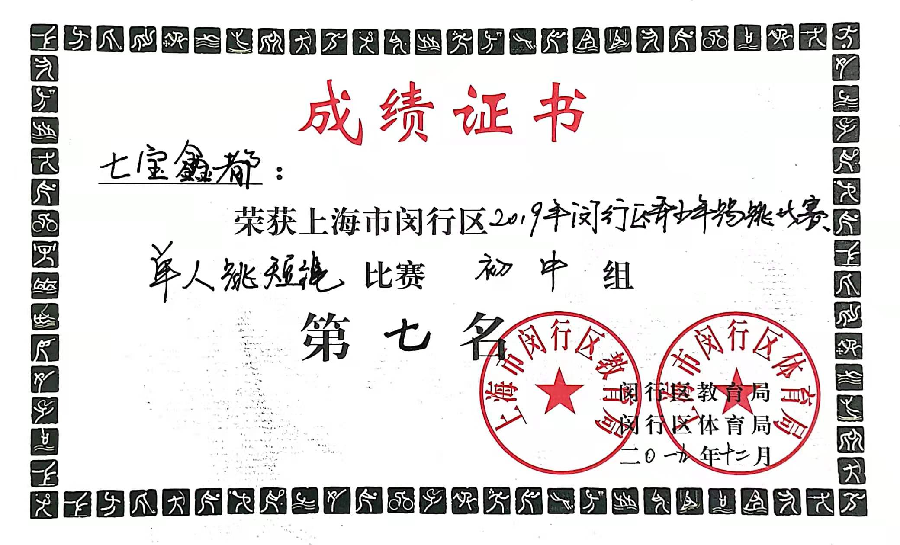 成绩证书
七宝鑫都：
荣获上海市闵行区2019年闵行区青少年踢跳比赛
单人跳短绳 比赛 初中 组
第七名
上海市闵行区教育局
上海市闵行区体育局
闵行区教育局
闵行区体育局
二0一九年十二月